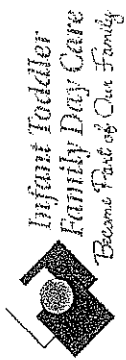 Infant Toddler
Family Day Care
Become Part of Our Family